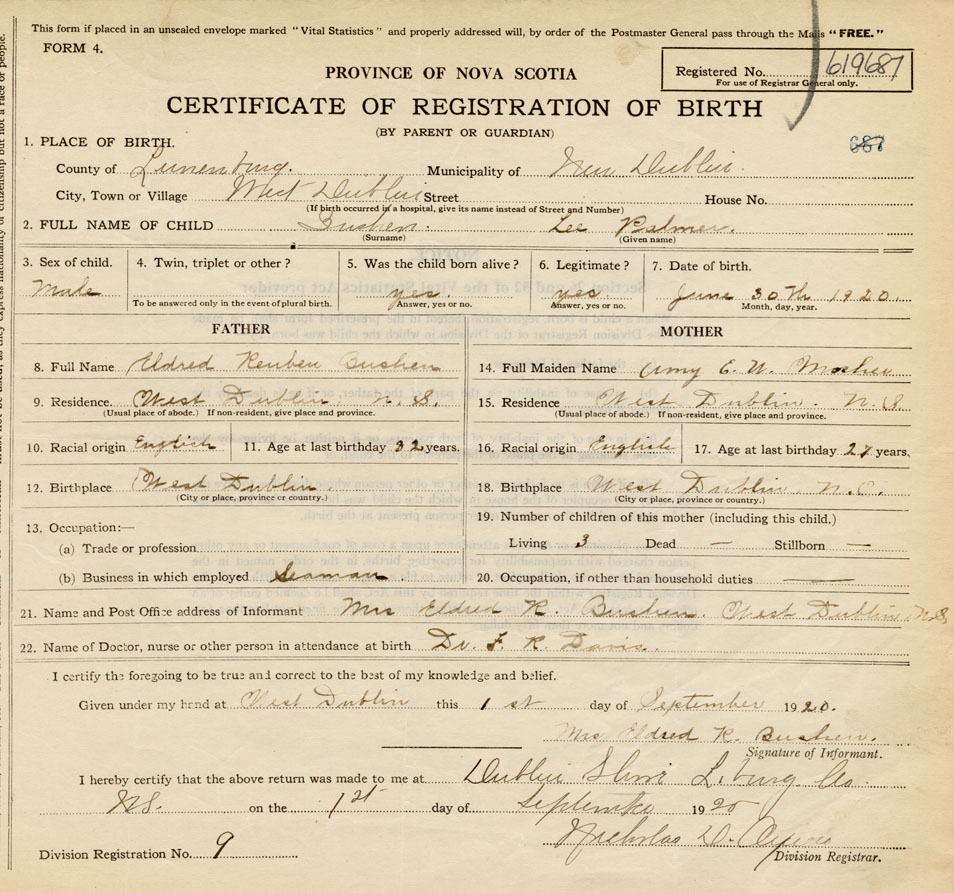 This form if placed in an unsealed envelope marked "Vital Statistics" and properly addressed will, by order of the Postmaster General pass through the Mails "FREE."
FORM 4.
Registered No. 619687
For use of Registrar General only.
PROVINCE OF NOVA SCOTIA
CERTIFICATE OF REGISTRATION OF BIRTH
(BY PARENT OR GUARDIAN)
687
1. PLACE OF BIRTH.
County of Lunenburg. Municipality of New Dublin.
City, Town or Village West Dublin Street House No.
(If birth occurred in a hospital, give its name instead of Street and Number)
2. FULL NAME OF CHILD Bushen. Lee Palmer.
(Surname) (Given name)
3. Sex of child. 4. Twin, triplet or other? 5. Was the child born alive? 6. Legitimate? 7. Date of birth.
Male yes. yes. June 30th 1920
To be answered only in the event of plural birth. Answer, yes or no. Answer, yes or no. Month, day, year.
FATHER MOTHER
8. Full Name Eldred Reuben Bushen 14. Full Maiden Name Amy E. W. Mosher
9. Residence. West Dublin N. S. 15. Residence West Dublin. N. S.
(Usual place of abode.) If non-resident, give place and province. (Usual place of abode.) If non-resident, give place and province.
10. Racial origin English 11. Age at last birthday 32 years. 16. Racial origin English 17. Age at last birthday 27 years.
12. Birthplace West Dublin 18. Birthplace West Dublin N.S.
(City or place, province or country.) (City or place, province or country.)
13. Occupation:— 19. Number of children of this mother (including this child.)
(a) Trade or profession Living 3 Dead — Stillborn —
(b) Business in which employed Seaman. 20. Occupation, if other than household duties —
21. Name and Post Office address of Informant Mrs Eldred R. Bushen. West Dublin N.S
22. Name of Doctor, nurse or other person in attendance at birth Dr. F. R. Davis.
I certify the foregoing to be true and correct to the best of my knowledge and belief.
Given under my hand at West Dublin this 1 st day of September 1920.
Mrs Eldred R. Bushen.
Signature of Informant.
I hereby certify that the above return was made to me at Dublin Shore L.burg Co
NS. on the 1st day of September 1920
Nicholas D.
Division Registration No. 9 Division Registrar.